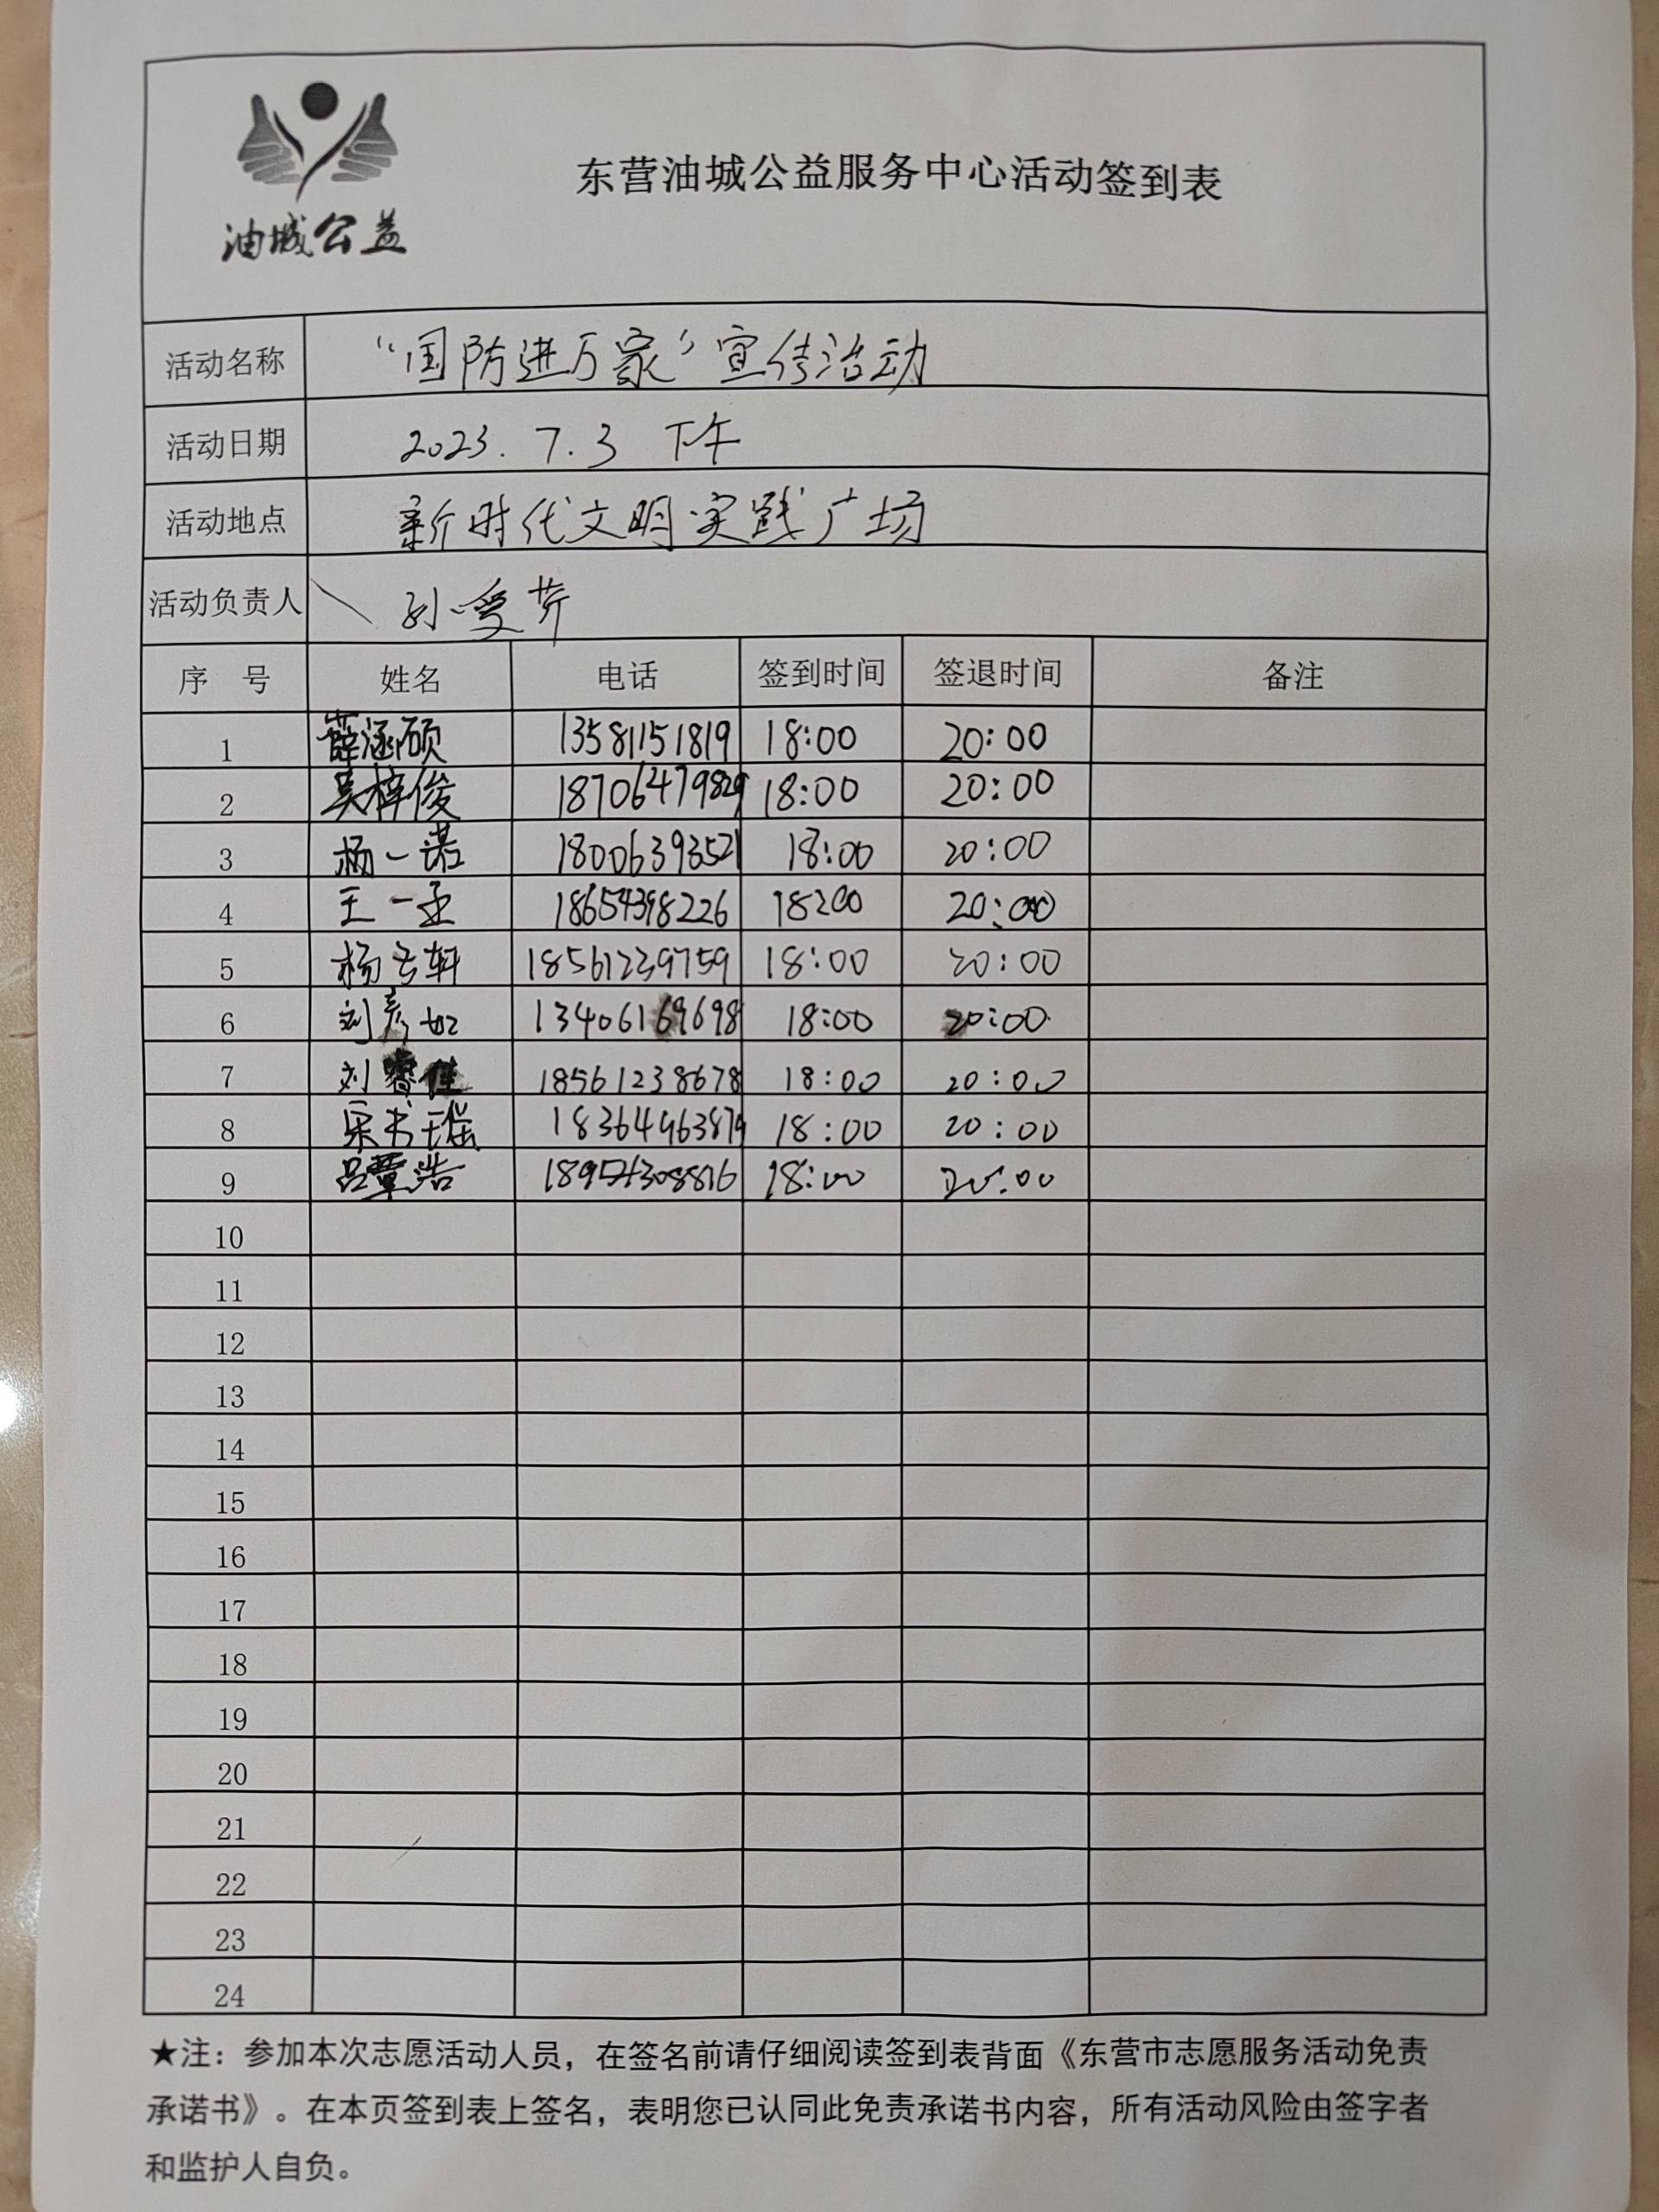 油城公益
东营油城公益服务中心活动签到表
活动名称 “国防进万家”宣传活动
活动日期 2023.7.3 下午
活动地点 新时代文明实践广场
活动负责人 孙爱芹
序 号 姓名 电话 签到时间 签退时间 备注
1 薛涵硕 13581151819 18:00 20:00
2 吴梓俊 18706479829 18:00 20:00
3 杨一诺 18006393521 18:00 20:00
4 王一丞 18654398226 18:00 20:00
5 杨云轩 18561239759 18:00 20:00
6 刘彦如 13406169698 18:00 20:00
7 刘睿佳 18561238678 18:00 20:00
8 宋书瑶 18364963879 18:00 20:00
9 吕覃浩 18:00 20:00
10
11
12
13
14
15
16
17
18
19
20
21
22
23
24
★注：参加本次志愿活动人员，在签名前请仔细阅读签到表背面《东营市志愿服务活动免责
承诺书》。在本页签到表上签名，表明您已认同此免责承诺书内容，所有活动风险由签字者
和监护人自负。